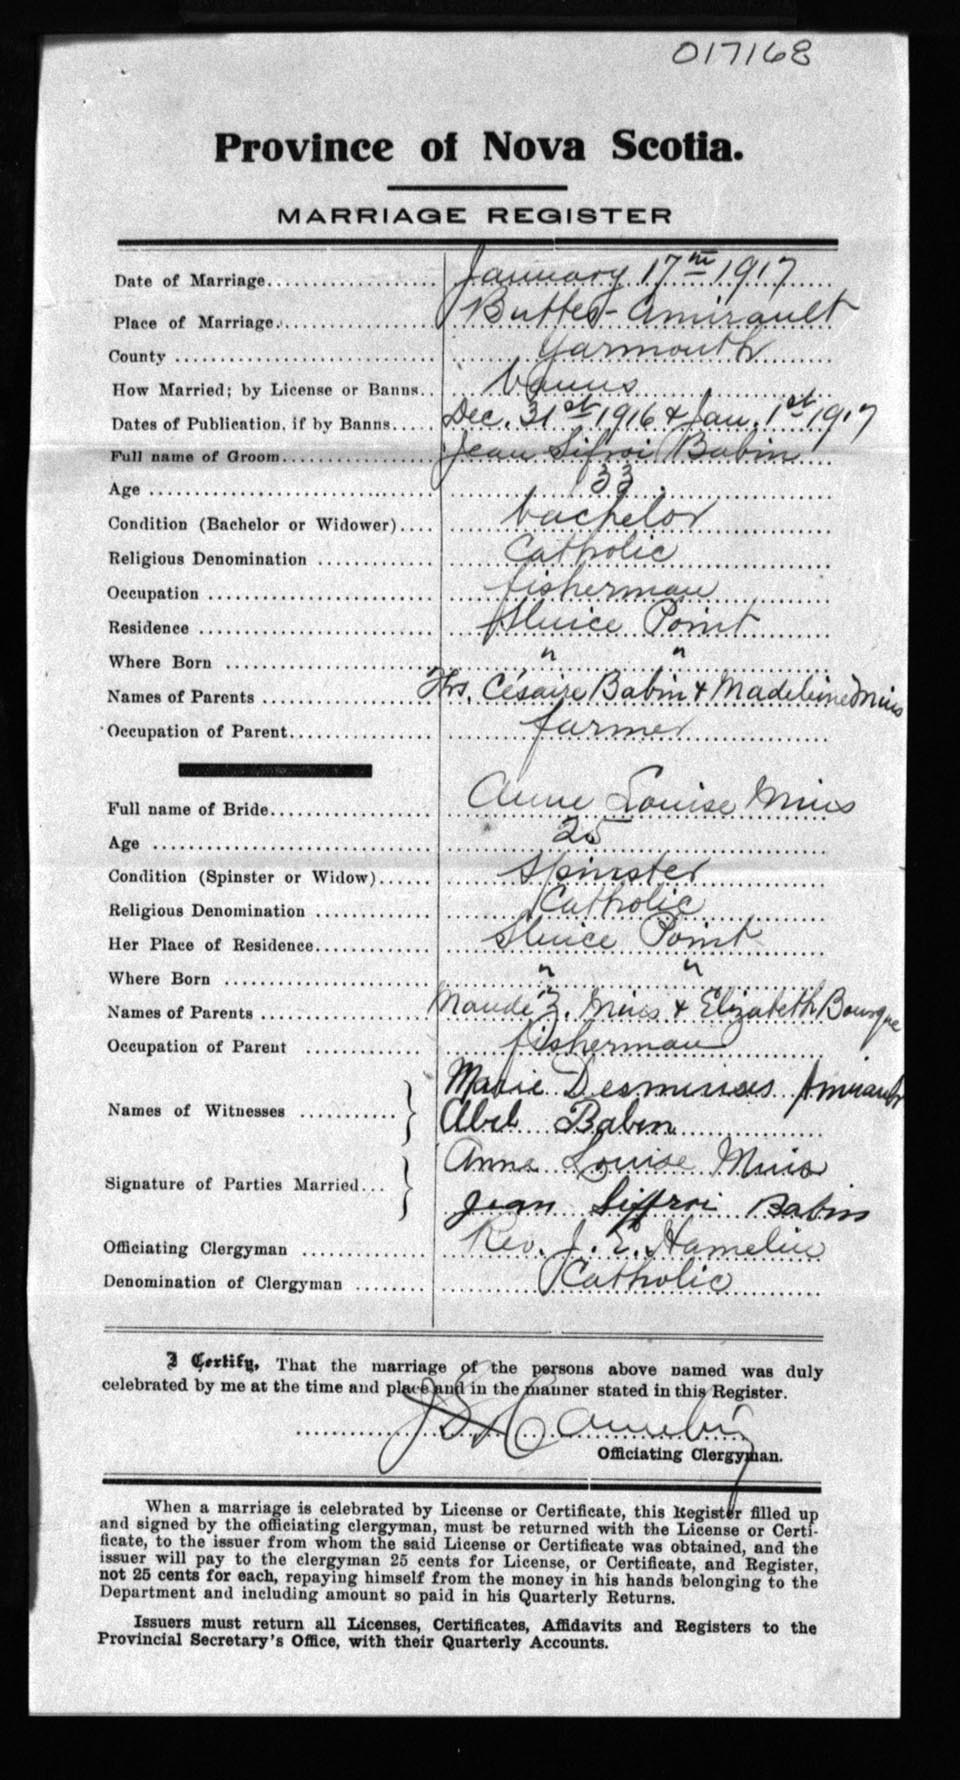 017168
Province of Nova Scotia.
MARRIAGE REGISTER
Date of Marriage.................. January 17th 1917
Place of Marriage................ Buttes-Amirault
County ........................... Yarmouth
How Married; by License or Banns.. banns
Dates of Publication, if by Banns..... Dec. 31st 1916 & Jan. 1st 1917
Full name of Groom................ Jean Sifroi Babin
Age ............................. 33
Condition (Bachelor or Widower).... bachelor
Religious Denomination ............ Catholic
Occupation ....................... fisherman
Residence ........................ Sluice Point
Where Born ...................... " "
Names of Parents ................. Frs. Césaire Babin & Madeleine Mius
Occupation of Parent.............. farmer
Full name of Bride................ Anne Louise Mius
Age ............................. 25
Condition (Spinster or Widow)...... Spinster
Religious Denomination ............ Catholic
Her Place of Residence............ Sluice Point
Where Born ...................... " "
Names of Parents ................. Mandé Z. Mius & Elizabeth Bourque
Occupation of Parent ............ fisherman
Names of Witnesses ........... } Marie Amirault
Abel Babin
Signature of Parties Married... } Anne Louise Mius
Jean Siffroi Babin
Officiating Clergyman ............ Rev. J. E. Hamelin
Denomination of Clergyman ........ Catholic
I Certify, That the marriage of the persons above named was duly
celebrated by me at the time and place and in the manner stated in this Register.
J E Hamelin
Officiating Clergyman.
When a marriage is celebrated by License or Certificate, this Register filled up
and signed by the officiating clergyman, must be returned with the License or Certi-
ficate, to the issuer from whom the said License or Certificate was obtained, and the
issuer will pay to the clergyman 25 cents for License, or Certificate, and Register,
not 25 cents for each, repaying himself from the money in his hands belonging to the
Department and including amount so paid in his Quarterly Returns.
Issuers must return all Licenses, Certificates, Affidavits and Registers to the
Provincial Secretary's Office, with their Quarterly Accounts.